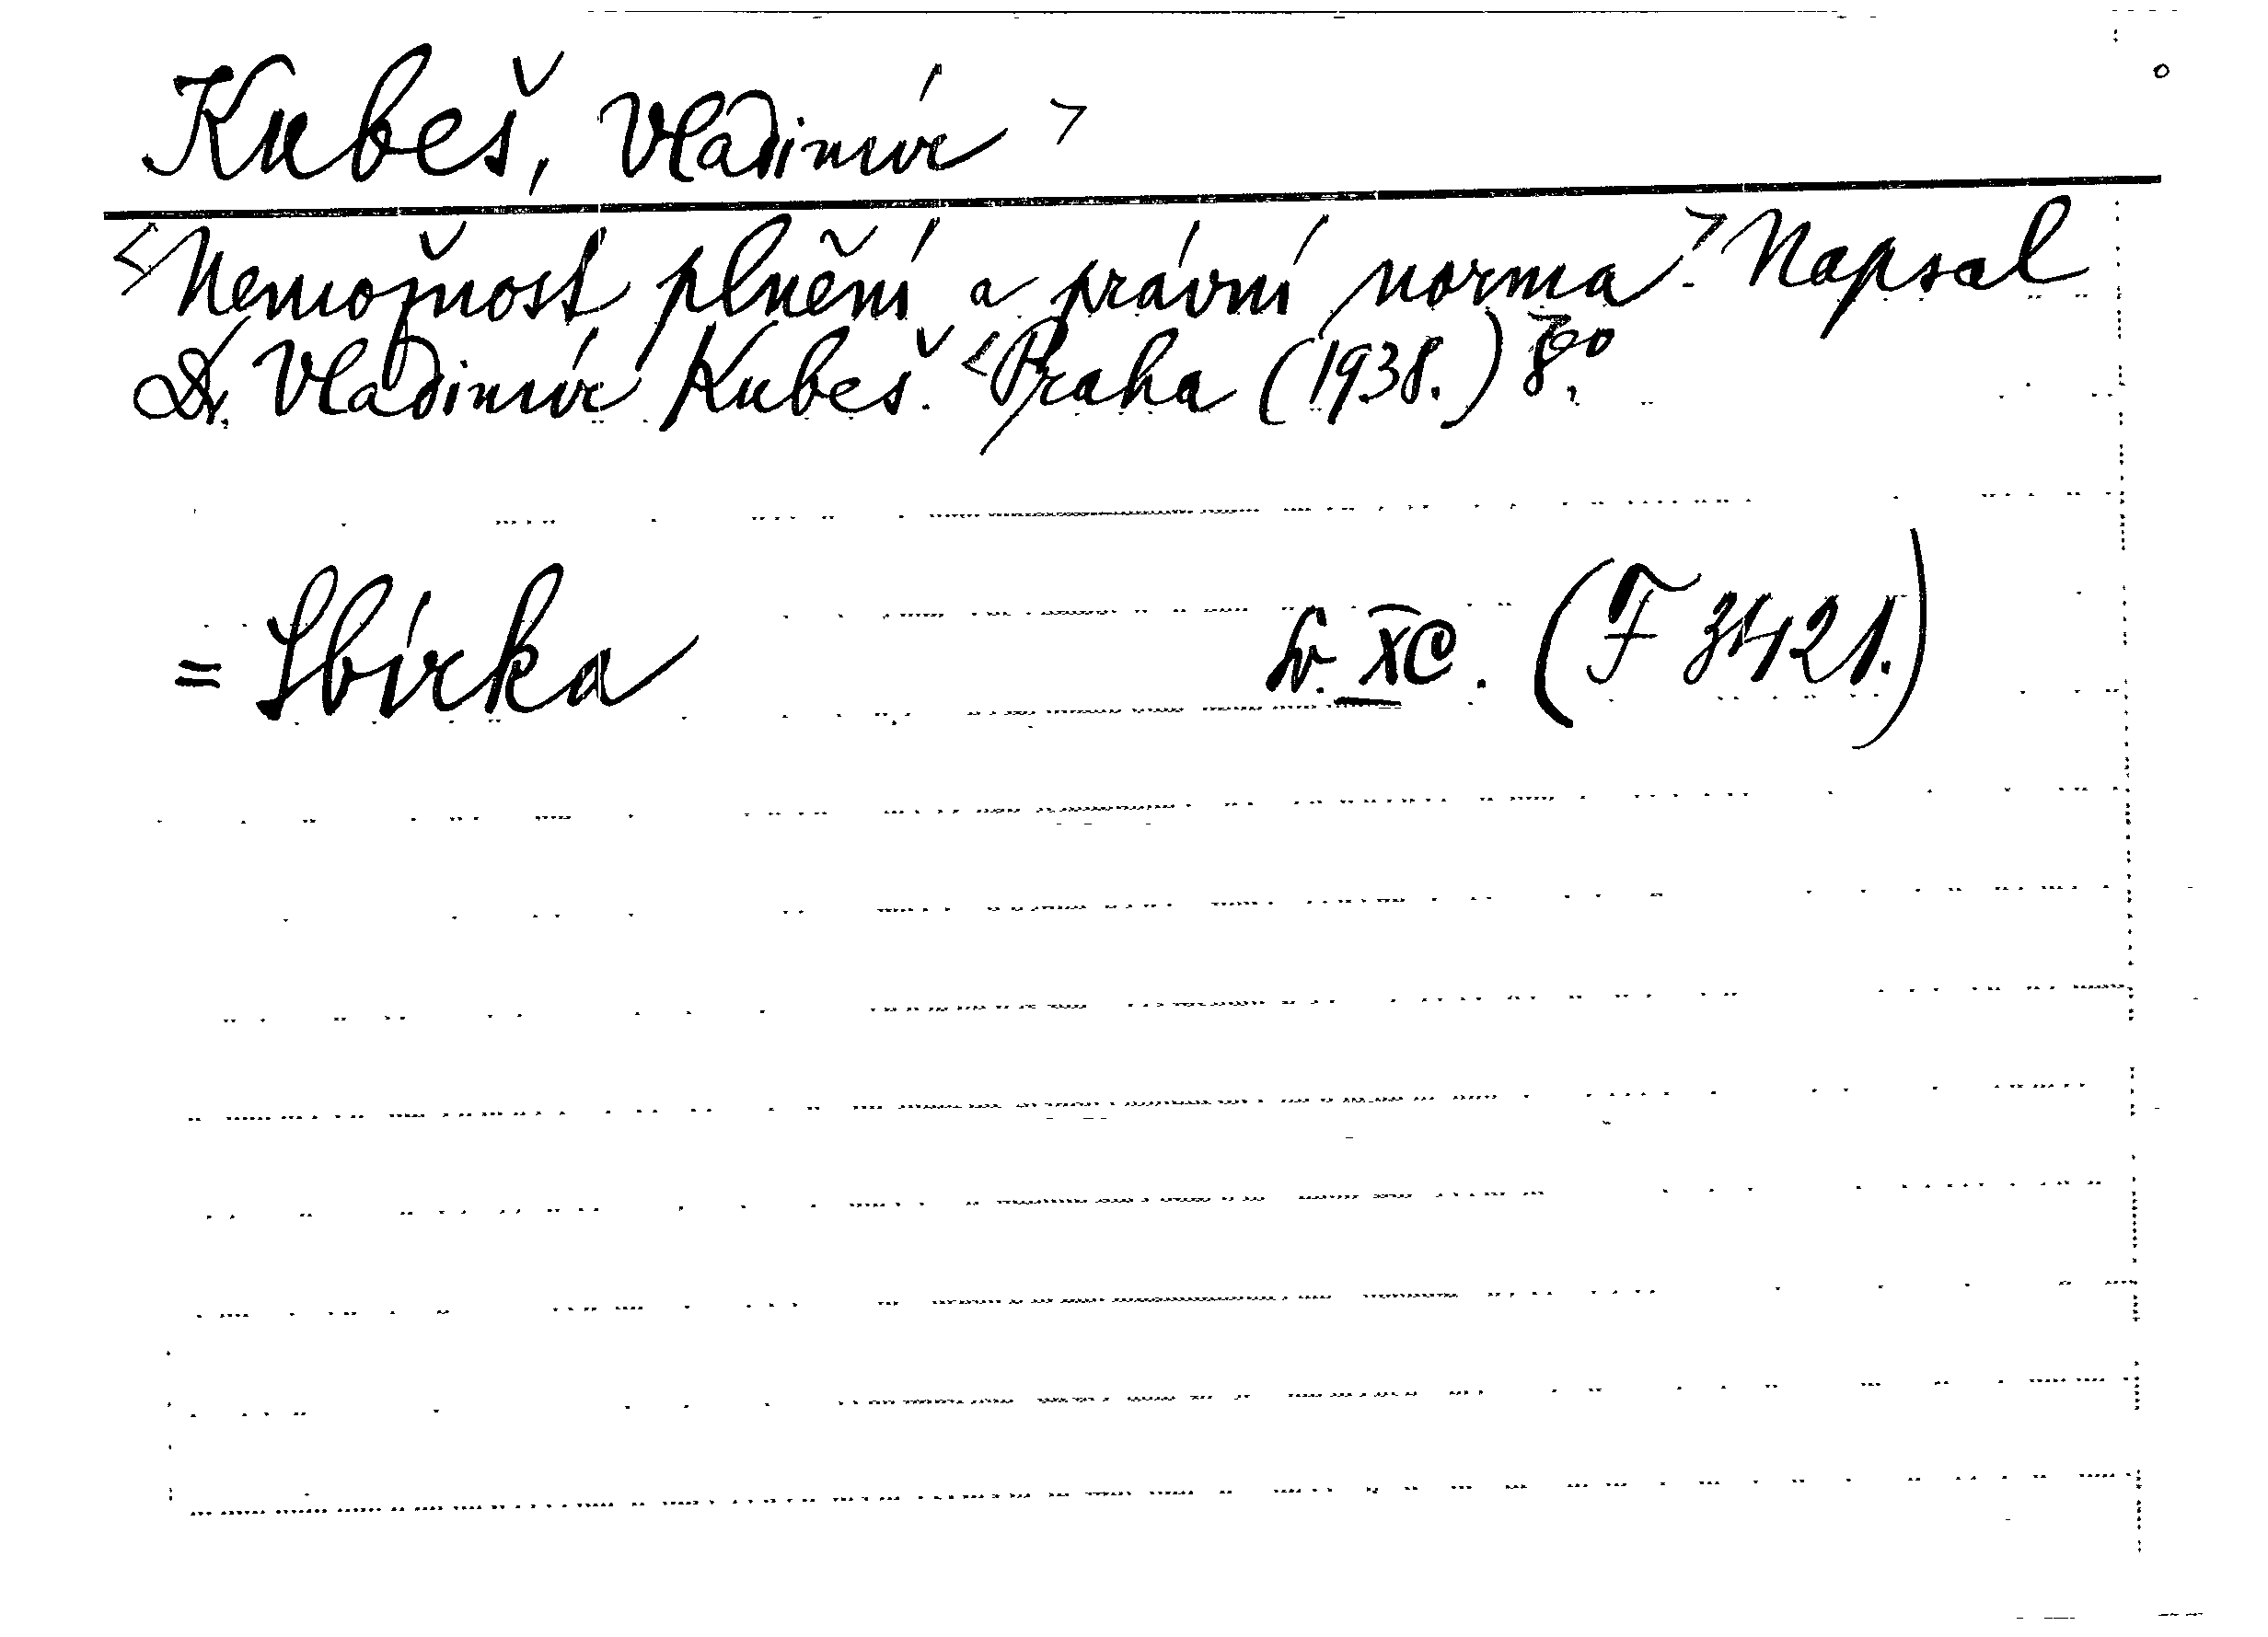 Kubeš, Vladimír >
<Nemožnost plnění a právní norma.> Napsal
Dr. Vladimír Kubeš. <Praha (1938.) 8.°>
= Sbírka Sv. XC. (F 3421.)